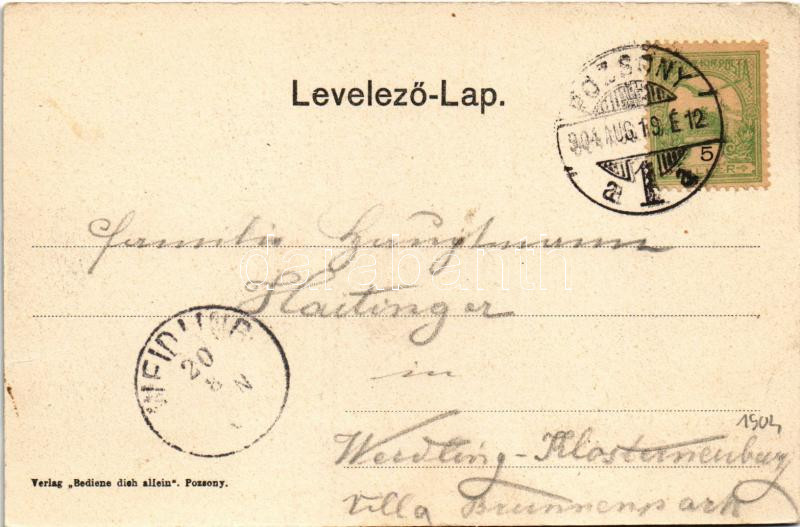 Levelező-Lap.
POZSONY 1
904 AUG. 19. É 12
a 1 a
5
Familie Hauptmann
Haitinger
in
Weidling-Klosterneuburg
Villa Brunnenpark
1904
WEIDLING
20
8
N
Verlag „Bediene dich allein“. Pozsony.
darabanth